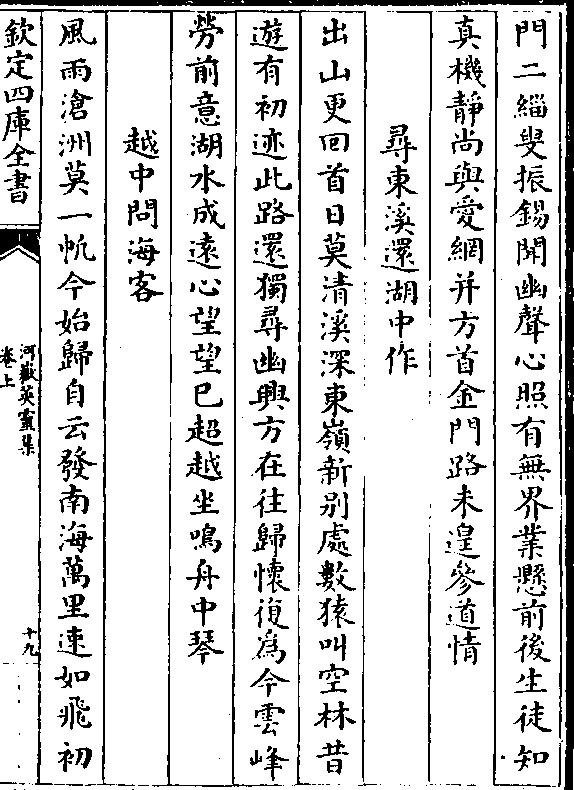 門二緇叟振錫聞幽聲心照有無界業懸前後生徒知
真機靜尚與愛網并方首金門路未遑參道情
尋東溪還湖中作
出山更回首日莫清溪深東嶺新别處數猿叫空林昔
遊有初迹此路還獨尋幽興方在往歸懷復為今雲峰
勞前意湖水成遠心望望已超越坐鳴舟中琴
越中問海客
風雨滄洲莫一帆今始歸自云發南海萬里速如飛初
欽定四庫全書
河嶽英靈集
卷上
十九